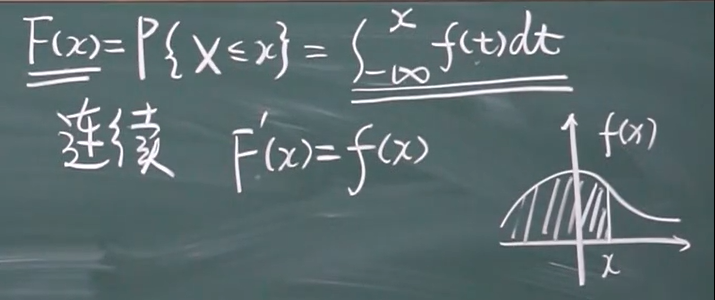 F(x)=P{X≤x}=∫_{-∞}^{x} f(t)dt
连续 F'(x)=f(x)
f(x)
x